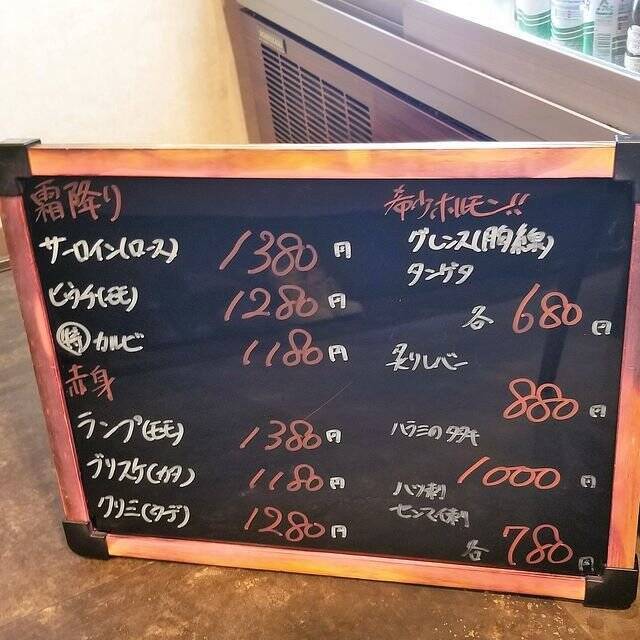 霜降り
サーロイン(ロース) 1380円
ヒウチ(モモ) 1280円
特 カルビ 1180円
赤身
ランプ(モモ) 1380円
ブリスケ(カタ) 1180円
クリミ(ウデ) 1280円
希少ホルモン!!
グレンス(胸線)
タンゲタ
各 680円
炙りレバー
880円
ハラミのタタキ
1000円
ハツ刺
センマイ刺
各 780円